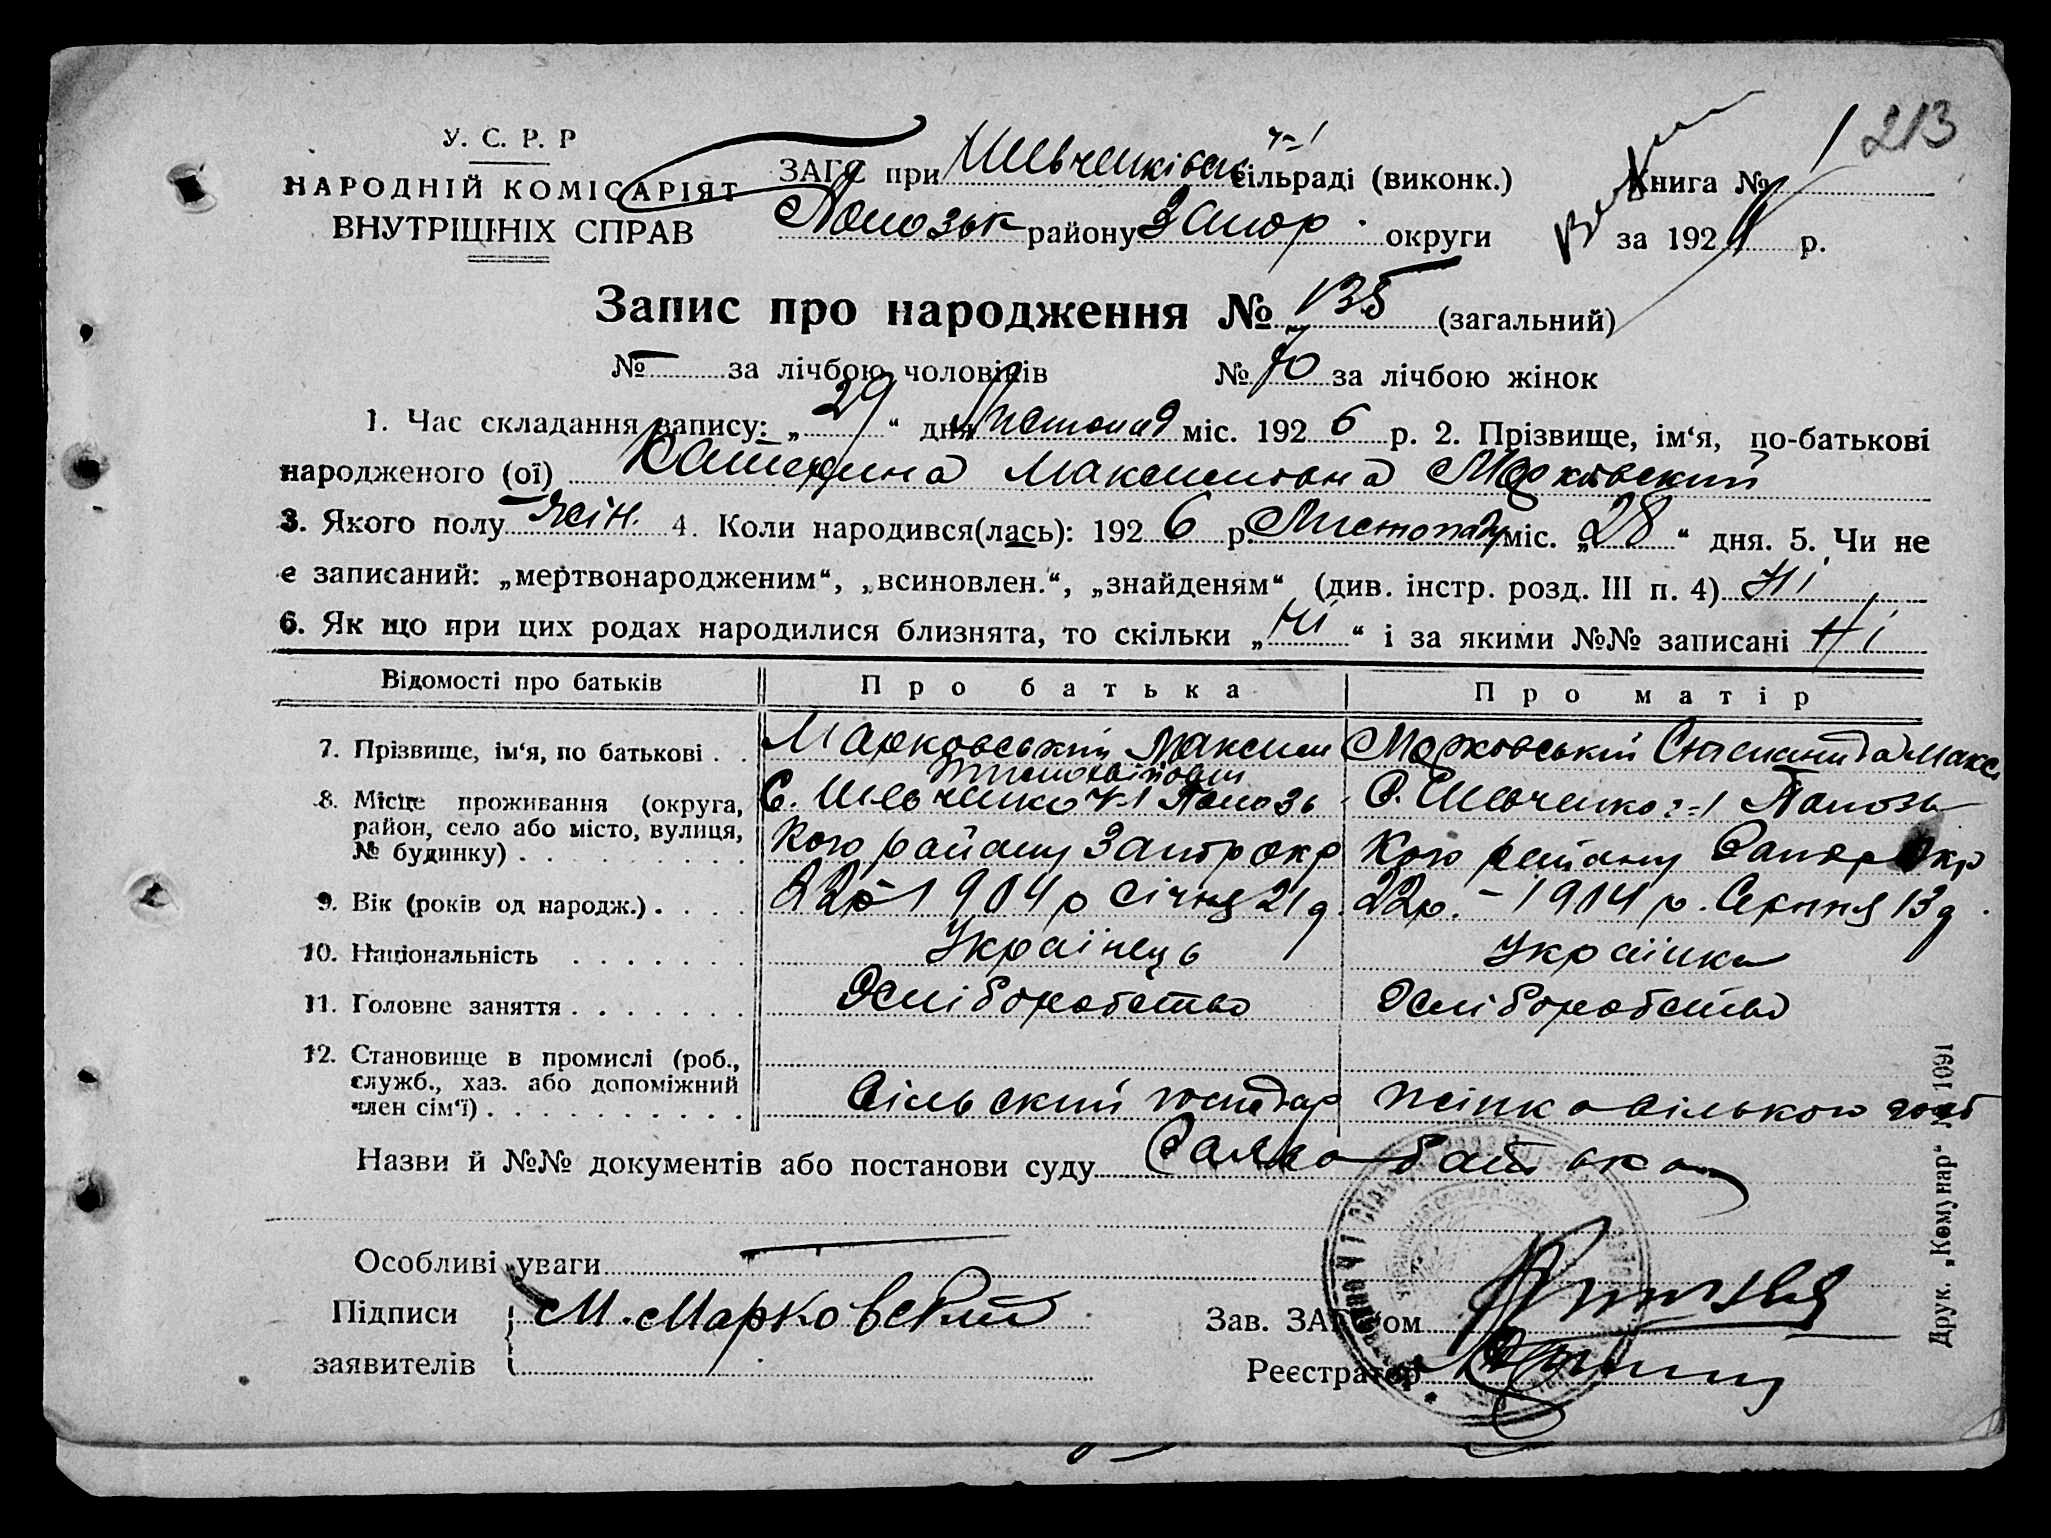 213
У. С. Р. Р
НАРОДНІЙ КОМІСАРІЯТ
ВНУТРІШНІХ СПРАВ
ЗАГС при Шевченківськ ч-1 сільраді (виконк.)
Полозьк району Запор. округи
Книга № 1
за 192 р.
Запис про народження № 135 (загальний)
№ — за лічбою чоловіків № 70 за лічбою жінок
1. Час складання запису: „29“ дня листопад міс. 1926 р. 2. Прізвище, ім‘я, по-батькові
народженого (ої) Катерина Максимовна Марковский
3. Якого полу жін. 4. Коли народився(лась): 1926 р. Листопаду міс. „28“ дня. 5. Чи не
є записаний: „мертвонародженим“, „всиновлен.“, „знайденям“ (див. інстр. розд. III п. 4) Ні
6. Як що при цих родах народилися близнята, то скільки „Ні“ і за якими №№ записані Ні
Відомості про батьків Про батька Про матір
7. Прізвище, ім‘я, по батькові . . Марковський Максим Марковській Макс
8. Місце проживання (округа, район, село або місто, вулиця, № будинку) . . . . . . . . .
С. Шевченко ч-1 Полозь С. Шевченко ч-1 Полозь
кого району Запорокр кого району Запор Окр
9. Вік (років од народж.) . . . . 22р-1904 р Січня 21 д. 22р. - 1904 р. Серпня 13 д.
10. Національність . . . . . . . Українець Українка
11. Головне заняття . . . . . . . Хліборобство Хліборобство
12. Становище в промислі (роб., служб., хаз. або допоміжний член сім‘ї) . . . . . . . . . .
Сільский господар жінка сілького госп
Назви й №№ документів або постанови суду Заява батька
Особливі уваги —
Підписи
заявителів
М. Марковский
Зав. ЗАГСом
Реєстратор
Друк. „Комунар“ № 1091